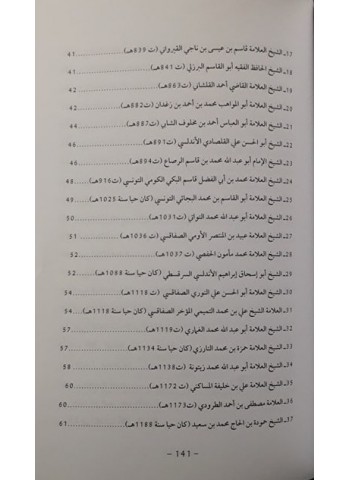 17ـ الشيخ العلامة قاسم بن عيسى بن ناجي القيرواني (ت 839هـ) 41
18ـ الشيخ الحافظ الفقيه أبو القاسم البرزلي (ت 841هـ) 41
19ـ الشيخ العلامة القاضي أحمد القلشاني (ت863هـ) 42
20ـ الشيخ العلامة أبو المواهب محمد بن أحمد بن زغدان (ت 882هـ) 42
21ـ الشيخ العلامة أبو العباس أحمد بن مخلوف الشابي (ت 887هـ) 44
22ـ الشيخ أبو الحسن علي القلصادي الأندلسي (ت891هـ) 46
23ـ الشيخ الإمام أبو عبد الله محمد بن قاسم الرصاع (ت894هـ) 46
24ـ الشيخ العلامة محمد بن أبي الفضل قاسم البكي الكومي التونسي (ت916هـ) 48
25ـ الشيخ العلامة أبو القاسم بن محمد البجائي التونسي (كان حيا سنة 1025هـ) 49
26ـ الشيخ العلامة أبو عبد الله محمد التواتي (ت1031هـ) 50
27ـ الشيخ العلامة عبيد بن المنتصر الأومي الصفاقسي (ت 1036هـ) 51
28ـ الشيخ العلامة محمد مأمون الحفصي (ت 1037هـ) 52
29ـ الشيخ أبو إسحاق إبراهيم الأندلسي السرقسطي (كان حيا سنة 1088هـ) 52
30ـ الشيخ العلامة أبو الحسن علي النوري الصفاقسي (ت 1118هـ) 54
31ـ العلامة الشيخ علي بن محمد التميمي المؤخر الصفاقسي (كان حيا سنة 1118هـ) 54
32ـ الشيخ العلامة أبو عبد الله محمد الغماري (ت1119هـ) 57
33ـ الشيخ العلامة حمزة بن محمد التارزي (كان حيا سنة 1134هـ) 57
34ـ الشيخ العلامة أبو عبد الله محمد زيتونة (ت 1138هـ) 58
35ـ الشيخ العلامة علي بن خليفة المساكني (ت 1172هـ) 60
36ـ العلامة مصطفى بن أحمد الطرودي (ت1173هـ) 60
37ـ الشيخ حمودة بن الحاج محمد بن سعيد (كان حيا سنة 1188هـ) 61
– 141 –